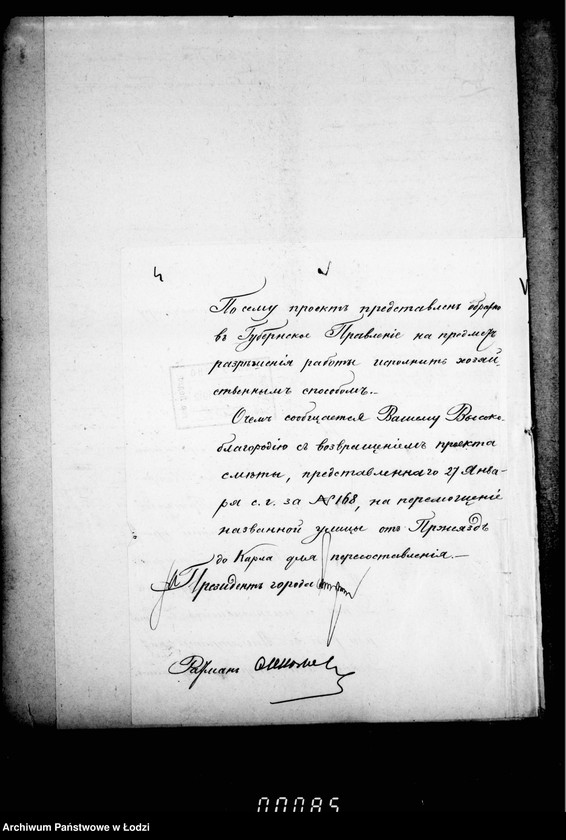 По сему проектъ представленъ обратно
въ Губернское Правленіе на предметъ
разрѣшенія работы исполнить хозяй
ственнымъ способомъ.
О чемъ сообщается Вашему Высоко-
благородію съ возвращеніемъ проекта
смѣты, представленнаго 27 Янва-
ря с. г. за № 168, на перемощеніе
названной улицы отъ Пржеяздъ
до Карла для пересоставленія.—
Президентъ города
Archiwum Państwowe w Łodzi
000085